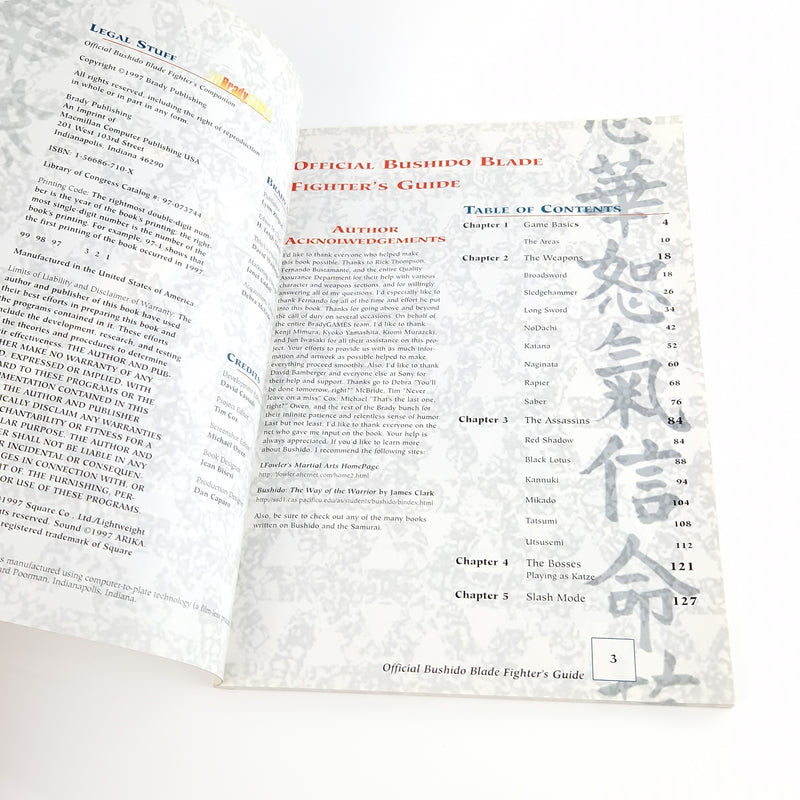 LEGAL STUFF
Official Bushido Blade Fighter's Companion
Copyright ©1997 Brady Publishing
All rights reserved, including the right of reproduction
in whole or in part in any form.
Brady
Brady Publishing
An Imprint of
Macmillan Computer Publishing USA
201 West 103rd Street
Indianapolis, Indiana 46290
ISBN: 1-56686-710-X
Library of Congress Catalog #: 97-073744
Printing Code: The rightmost double-digit num-
ber is the year of the book's printing; the right-
most single-digit number is the number of the
book's printing. For example, 97-1 shows that
the first printing of the book occurred in 1997.
99 98 97 3 2 1
Manufactured in the United States of America.
Limits of Liability and Disclaimer of Warranty: The
author and publisher of this book have used
their best efforts in preparing this book and
the programs contained in it. These efforts
include the development, research, and testing
the theories and procedures to determine
effectiveness. THE AUTHOR AND PUB-
MAKE NO WARRANTY OF ANY
EXPRESSED OR IMPLIED, WITH
TO THESE PROGRAMS OR THE
CONTAINED IN THIS
THE AUTHOR AND PUBLISHER
DISCLAIM ANY WARRANTIES
AND FITNESS FOR A
PURPOSE. THE AUTHOR AND
SHALL NOT BE LIABLE IN ANY
INCIDENTAL OR CONSEQUEN-
IN CONNECTION WITH, OR
OF THE FURNISHING, PER-
OR USE OF THESE PROGRAMS.
©1997 Square Co., Ltd/Lightweight
reserved. Sound ©1997 ARIKA.
registered trademark of Square
manufactured using computer-to-plate technology (a film-less
Poorman, Indianapolis, Indiana.
CREDITS
Project Editor
Tim Cox
Screenshot Editor
Michael Owen
Book Designer
Production Designer
Dan Caparo
OFFICIAL BUSHIDO BLADE
FIGHTER'S GUIDE
AUTHOR
ACKNOLWEDGEMENTS
I'd like to thank everyone who helped make
this book possible. Thanks to Rick Thompson,
Fernando Bustamante, and the entire Quality
Assurance Department for their help with various
character and weapons sections, and for willingly
answering all of my questions. I'd especially like to
thank Fernando for all of the time and effort he put
into this book. Thanks for going above and beyond
the call of duty on several occasions. On behalf of
the entire BradyGAMES team, I'd like to thank
Kenji Mimura, Kyoko Yamashita, Kiomi Murazeki,
and Jun Iwasaki for all their assistance on this pro-
ject. Your efforts to provide us with as much infor-
mation and artwork as possible helped to make
everything proceed smoothly. Also, I'd like to thank
David Bamberger and everyone else at Sony for
their help and support. Thanks go to Debra "You'll
be done tomorrow...right?" McBride, Tim "Never
leave on a miss" Cox, Michael "That's the last one,
right?" Owen, and the rest of the Brady bunch for
their infinite patience and relentless sense of humor.
Last but not least, I'd like to thank everyone on the
net who gave me input on the book. Your help is
always appreciated. If you'd like to learn more
about Bushido, I recommend the following sites:
LFowler's Martial Arts HomePage
http://lfowler.alternet.com/home2.html
Bushido: The Way of the Warrior by James Clark
http://ssd1.cas.pacificu.edu/as/students/bushido/bindex.html
Also, be sure to check out any of the many books
written on Bushido and the Samurai.
TABLE OF CONTENTS
Chapter 1 Game Basics 4
The Areas 10
Chapter 2 The Weapons 18
Broadsword 18
Sledgehammer 26
Long Sword 34
NoDachi 42
Katana 52
Naginata 60
Rapier 68
Saber 76
Chapter 3 The Assassins 84
Red Shadow 84
Black Lotus 88
Kannuki 94
Mikado 104
Tatsumi 108
Utsusemi 112
Chapter 4 The Bosses 121
Playing as Katze
Chapter 5 Slash Mode 127
華
恕
氣
信
命
Official Bushido Blade Fighter's Guide
3